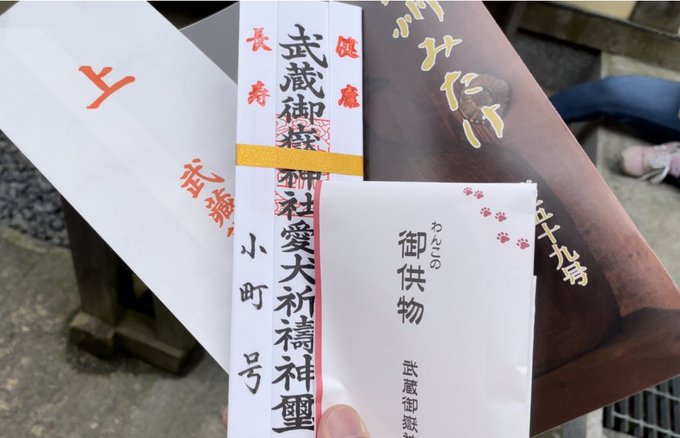 上
武蔵
健康
長寿
武蔵御嶽神社愛犬祈禱神璽
小町号
わんこの
御供物
武蔵御嶽神
みたけ
五十九号